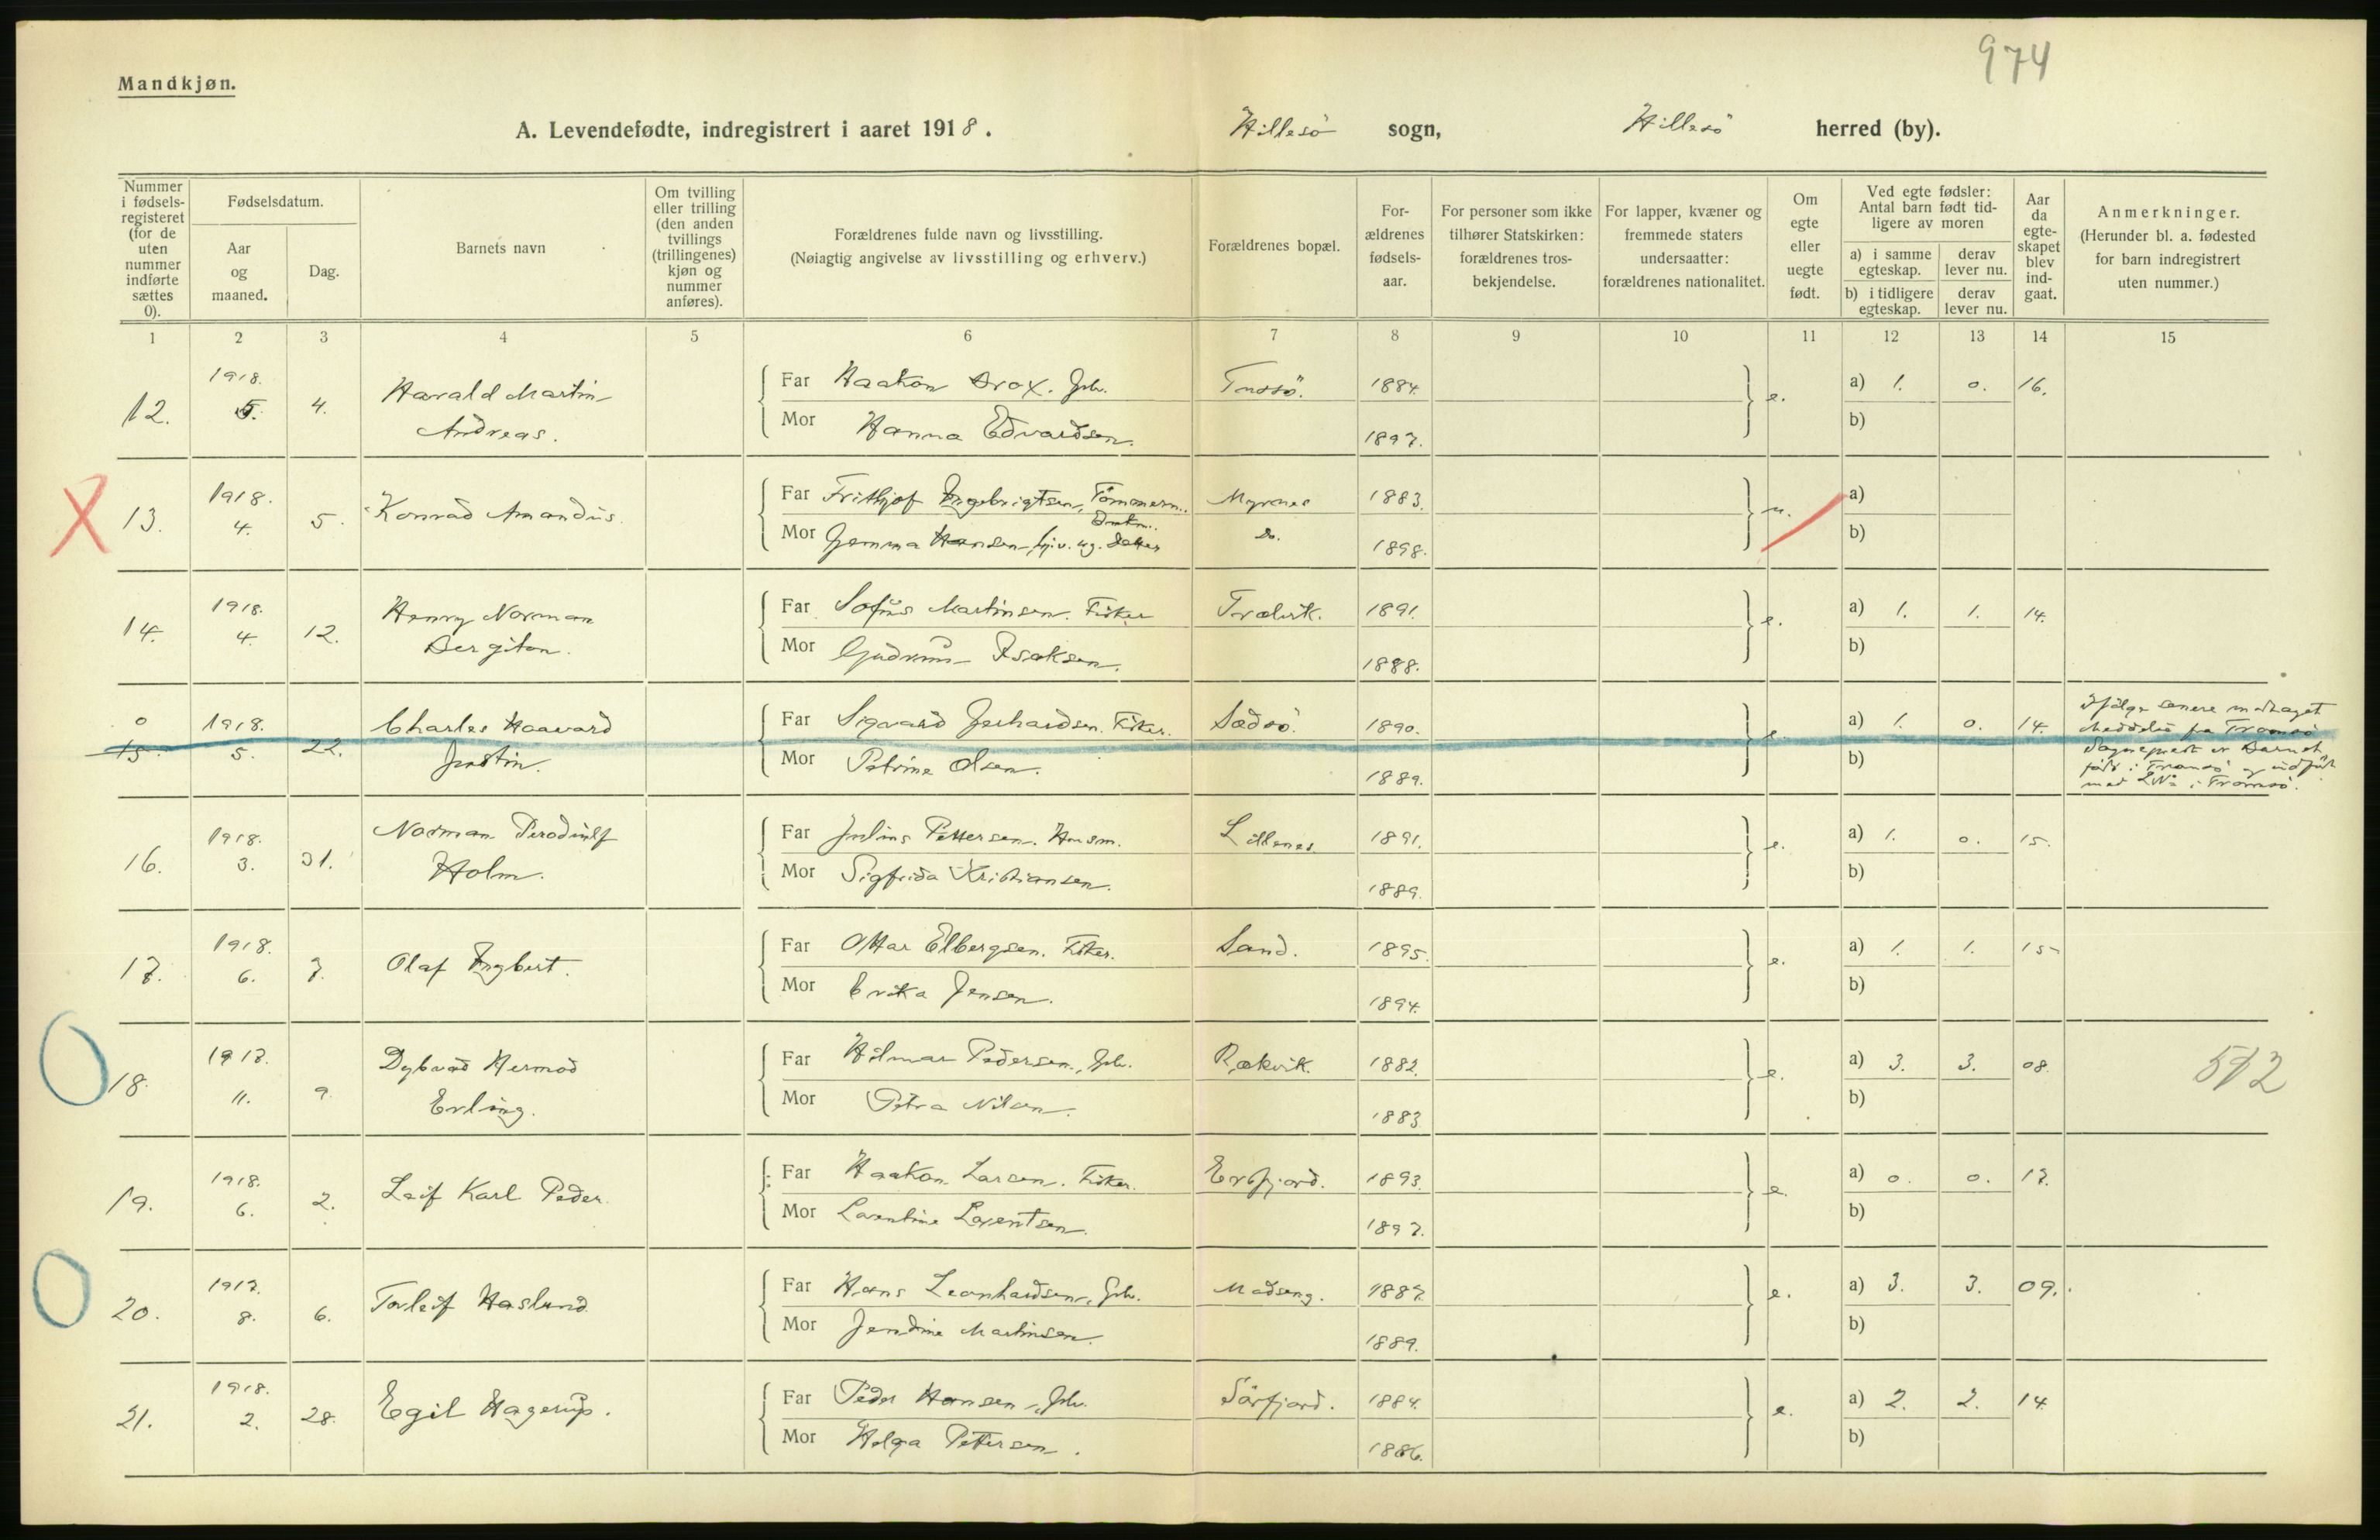 974
Mandkjøn.
A. Levendefødte, indregistrert i aaret 1918. Hillesö sogn, Hillesö herred (by).
Nummer i fødsels-registeret (for de uten nummer indførte sættes 0).
Fødselsdatum.
Aar og maaned.
Dag.
Barnets navn
Om tvilling eller trilling (den anden tvillings (trillingenes) kjøn og nummer anføres).
Forældrenes fulde navn og livsstilling.
(Nøiagtig angivelse av livsstilling og erhverv.)
Forældrenes bopæl.
For-ældrenes fødsels-aar.
For personer som ikke tilhører Statskirken: forældrenes tros-bekjendelse.
For lapper, kvæner og fremmede staters undersaatter: forældrenes nationalitet.
Om egte eller uegte født.
Ved egte fødsler: Antal barn født tid-ligere av moren
a) i samme egteskap.
derav lever nu.
b) i tidligere egteskap.
derav lever nu.
Aar da egte-skapet blev ind-gaat.
Anmerkninger.
(Herunder bl. a. fødested for barn indregistrert uten nummer.)
1 2 3 4 5 6 7 8 9 10 11 12 13 14 15
12. 1918. 5. 4. Harald Martin Andreas.
Far Haakon Brox. Gbr. Tussö. 1884. e. a) 1. 0. 16.
Mor Hanna Edvardsen. 1897. b)
13. 1918. 4. 5. Konrad Amandus.
Far Frithjof Ingebrigtsen, Tömmerm. Myrnes 1883. u. a)
Mor Gemma Hansen, Do. 1898. b)
14. 1918. 4. 12. Henry Norman Bergiton.
Far Sofus Martinsen. Fisker Trælvik. 1891. e. a) 1. 1. 14.
Mor Gudrun Isaksen. 1888. b)
0 15. 1918. 5. 22. Charles Haavard Justin.
Far Sigvard Gerhardsen. Fisker. Sædsö. 1890. e. a) 1. 0. 14.
Mor Petrine Olsen. 1889. b)
Ifölge senere mottaget
meddelse fra Tromsö
Sogneprest er Barnet
född i Tromsö og indfört
med LNo i Tromsö.
16. 1918. 3. 31. Norman Holm.
Far Julius Pettersen. Husm. Lillenes 1891. e. a) 1. 0. 15.
Mor Sigfrida Kristiansen. 1889. b)
17. 1918. 6. 7. Olaf Ingbert.
Far Ottar Elbergsen. Fisker. Sand. 1895. e. a) 1. 1. 15
Mor Erika Jensen. 1894. b)
18. 1917. 11. 9. Dybvad Hermod Erling.
Far Hilmar Pedersen, Gbr. Rækvik. 1882. e. a) 3. 3. 08.
Mor Petra Nilsen. 1883. b)
512
19. 1918. 6. 2. Leif Karl Peder.
Far Haakon Larsen. Fisker. Ersfjord. 1893. e. a) 0. 0. 17.
Mor Lorentine Lorentsen. 1897. b)
20. 1917. 8. 6. Torleif Haslund
Far Hans Leonhardsen, Gbr. Madseng. 1887. e. a) 3. 3. 09.
Mor Jendine Martinsen. 1889. b)
21. 1918. 2. 28. Egil Hagerup.
Far Peder Hansen, Gbr. Sörfjord. 1884. e. a) 2. 2. 14
Mor Helga Pettersen. 1886. b)